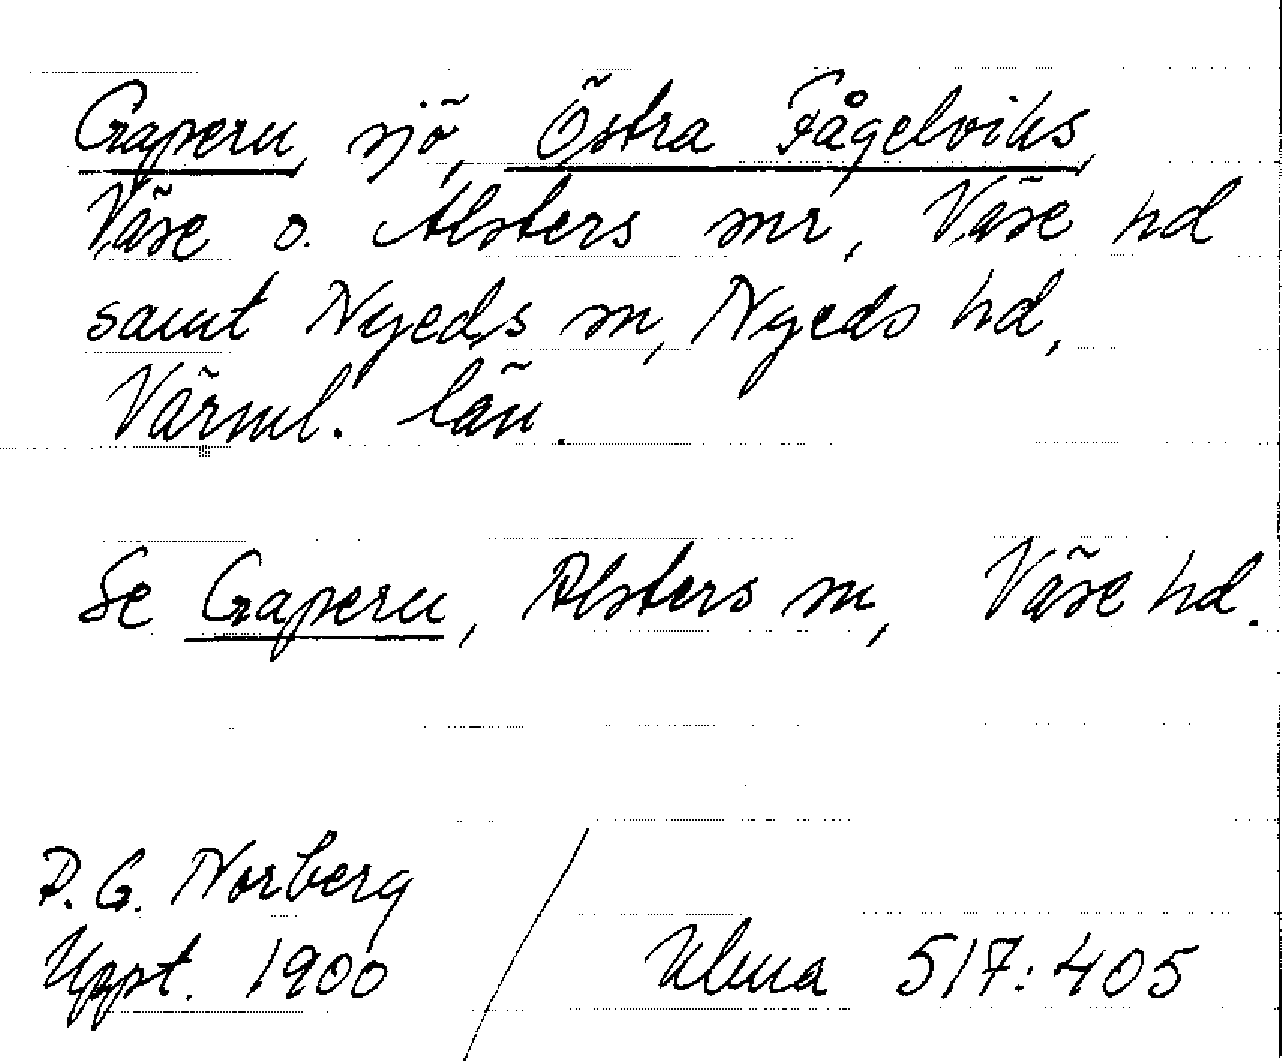 Gapern, sjö, Östra Fågelviks,
Väse o. Alsters snr, Väse hd
samt Nyeds sn, Nyeds hd,
Värml. län.
Se Gapern, Alsters sn, Väse hd.
P.G. Norberg
Uppt. 1900 / Ulma 517:405